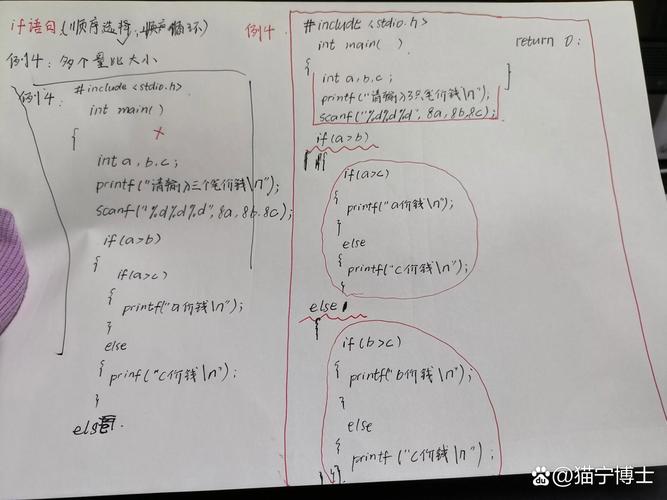 if语句(顺序选择,顺序循环)
例4: 多个量比大小
例4: #include <stdio.h>
int main( )
{
int a, b, c;
printf("请输入三个笔价钱\n");
scanf("%d%d%d", &a, &b, &c);
if(a>b)
{
if(a>c)
{
printf("a价钱\n");
}
else
{ prinf("c价钱\n");
}
else
例4
#include <stdio.h>
int main( )
{
int a, b, c;
printf("请输入3只笔价钱\n");
scanf("%d%d%d", &a, &b, &c);
if(a>b)
{
if(a>c)
{
printf("a价钱\n");
}
else
{ printf("c价钱\n");
}
else
{
if(b>c)
{ printf("b价钱\n");
}
else
{ printf("c价钱\n");
}}
return 0;
}
猫宁博士